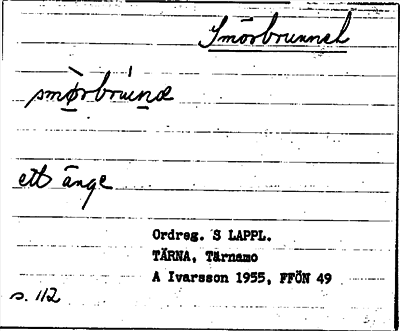 Smörbrunnel
smø̀rbrúnæ
ett änge
Ordreg. S LAPPL.
TÄRNA, Tärnamo
A Ivarsson 1955, FFÖN 49
s. 112